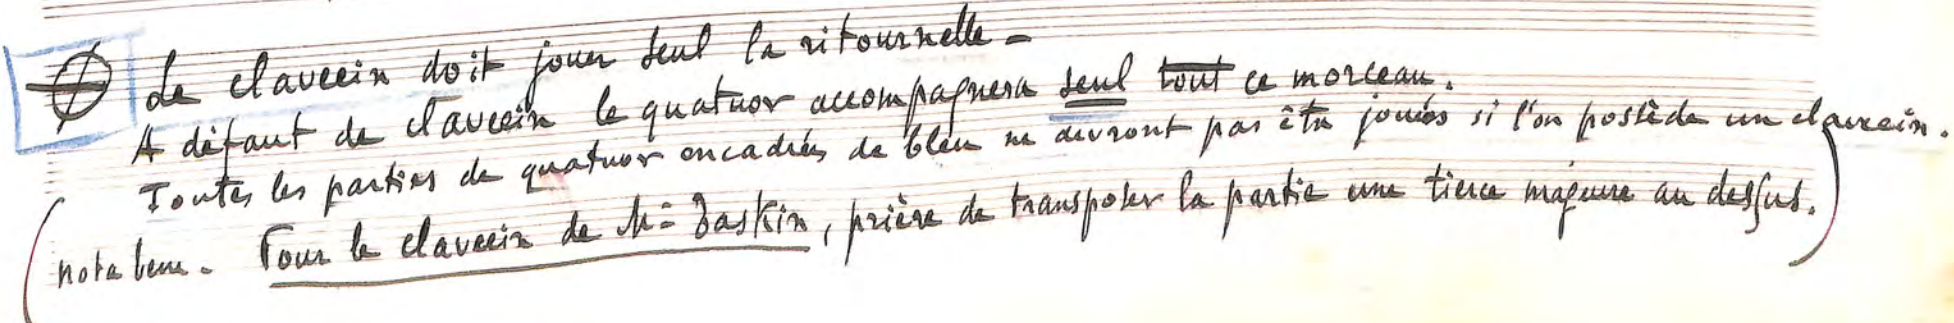 Le clavecin doit jouer seul la ritournelle -
A défaut de clavecin le quatuor accompagnera seul tout ce morceau.
Toutes les parties de quatuor encadrées de bleu ne devront pas être jouées si l'on possède un clavecin.
(nota bene. Pour le clavecin de Mr Baskin, prière de transposer la partie une tierce majeure au dessus.)